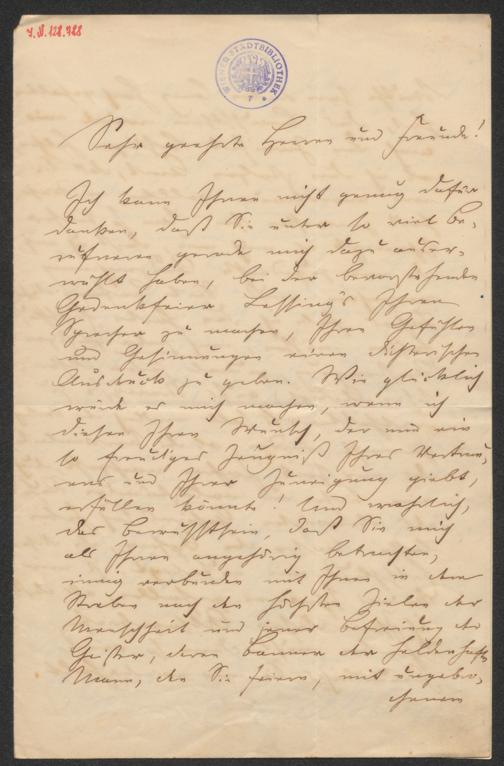 I.N. 128.728
WIENER STADTBIBLIOTHEK
Sehr geehrte Herren und Freunde!
Ich kann Ihnen nicht genug dafür
danken, daß Sie unter so viel Be-
rufneren gerade mich dazu auser-
wählt haben, bei der bevorstehenden
Gedenkfeier Lessing's Ihren
Sprecher zu machen, Ihren Gefühlen
und Gesinnungen einen dichterischen
Ausdruck zu geben. Wie glücklich
würde es mich machen, wenn ich
diesen Ihren Wunsch, der mir ein
so freudiges Zeugniß Ihres Vertrau-
ens und Ihrer Zuneigung giebt,
erfüllen könnte! Und wahrlich,
das Bewußtsein, daß Sie mich
als Ihnen angehörig betrachten,
innig verbunden mit Ihnen in dem
Streben nach den höchsten Zielen der
Menschheit und jener Befreiung der
Geister, deren Banner der heldenhafte
Mann, den Sie feiern, mit ungebro-
chenem